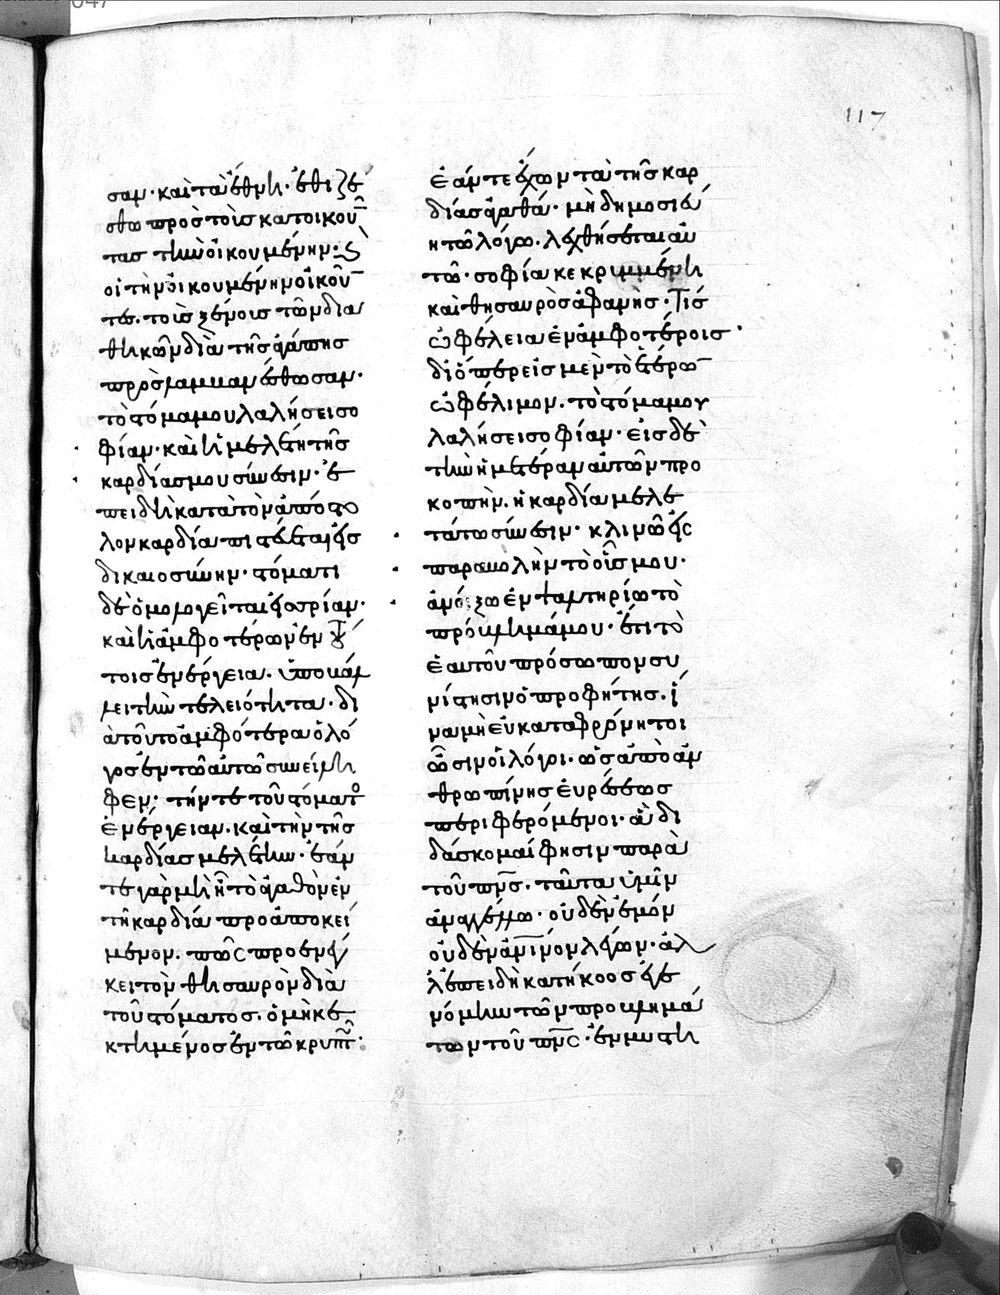 117
σαν· καὶ τὰ ἔθνη· ἐθιζέ
σθω πρὸς τοὺς κατοικοῦν
τας τὴν οἰκουμένην· καὶ
οἱ τὴν οἰκουμένην οἰκοῦν
τες. τοῖς ξένοις τῶν δια
θηκῶν διὰ τῆς ἀγάπης
προσγραμμαν έσθωσαν·
τὸ στόμα μου λαλήσει σο
φίαν· καὶ ἡ μελέτη τῆς
καρδίας μου σύνεσιν· ἐ
πειδὴ κατὰ τὸν ἀπόστο
λον καρδία πιστεύεται εἰς
δικαιοσύνην· στόματι
δὲ ὁμολογεῖται εἰς σωτηρίαν·
καὶ ἡ ἀμφοτέρων ἐν τού
τοις ἐνέργεια. ὑπογράφει
μει τὴν τελειότητα· δι
ὰ τοῦτο ἀμφότερα ὁ λό
γος ἐν τῷ αὐτῷ συνείλη
φεν· τήν τε τοῦ στόματος
ἐνέργειαν. καὶ τὴν τῆς
καρδίας μελέτην· ἐάν
τε γὰρ μὴ ᾖ τὸ ἀγαθὸν ἐν
τῇ καρδίᾳ προαποκεί
μενον. πῶς προενέγ
κει τὸν θησαυρὸν διὰ
τοῦ στόματος. ὁ μὴ κε
κτημένος ἐν τῷ κρυπτῷ·
ἐάν τε ἔχων τὰ τῆς καρ
δίας ἀγαθά· μὴ δημοσιεύ
ῃ τῷ λόγῳ. λεχθήσεται αὐ
τῷ· σοφία κεκριμμένη
καὶ θησαυρὸς ἀφανής· τίς
ὠφέλεια ἐν ἀμφοτέροις·
διόπερ εἰς μὲν τὸ ἑτέρων
ὠφέλιμον. τὸ στόμα μου
λαλήσει σοφίαν· εἰς δὲ
τὴν ἡμετέραν αὐτῶν προ
κοπὴν. ἡ καρδία μελε
τάτω σύνεσιν· κλινῶ εἰς
παραβολὴν τὸ οὖς μου·
ἀνοίξω ἐν ψαλτηρίῳ τὸ
πρόβλημά μου· ἔτι τὸ
ἑαυτοῦ πρόσωπον συ
νίστησιν ὁ προφήτης. ἵ
να μὴ εὐκαταφρόνητοι
ὦσιν οἱ λόγοι· ὡς ἀπὸ ἀν
θρωπίνης εὑρέσεως
περιφερόμενοι· ἃ δι
δάσκομαί φησιν παρὰ
τοῦ πνς. ταῦτα ὑμῖν
ἀναγγέλλω· οὐδὲν ἐμόν
οὐδὲν ἀνινον λέγων· ἀλ
λ' ἐπειδὴ κατήκοος ἐγε
νόμην τῶν προβλημά
των τοῦ πνς· ἐν μυστη